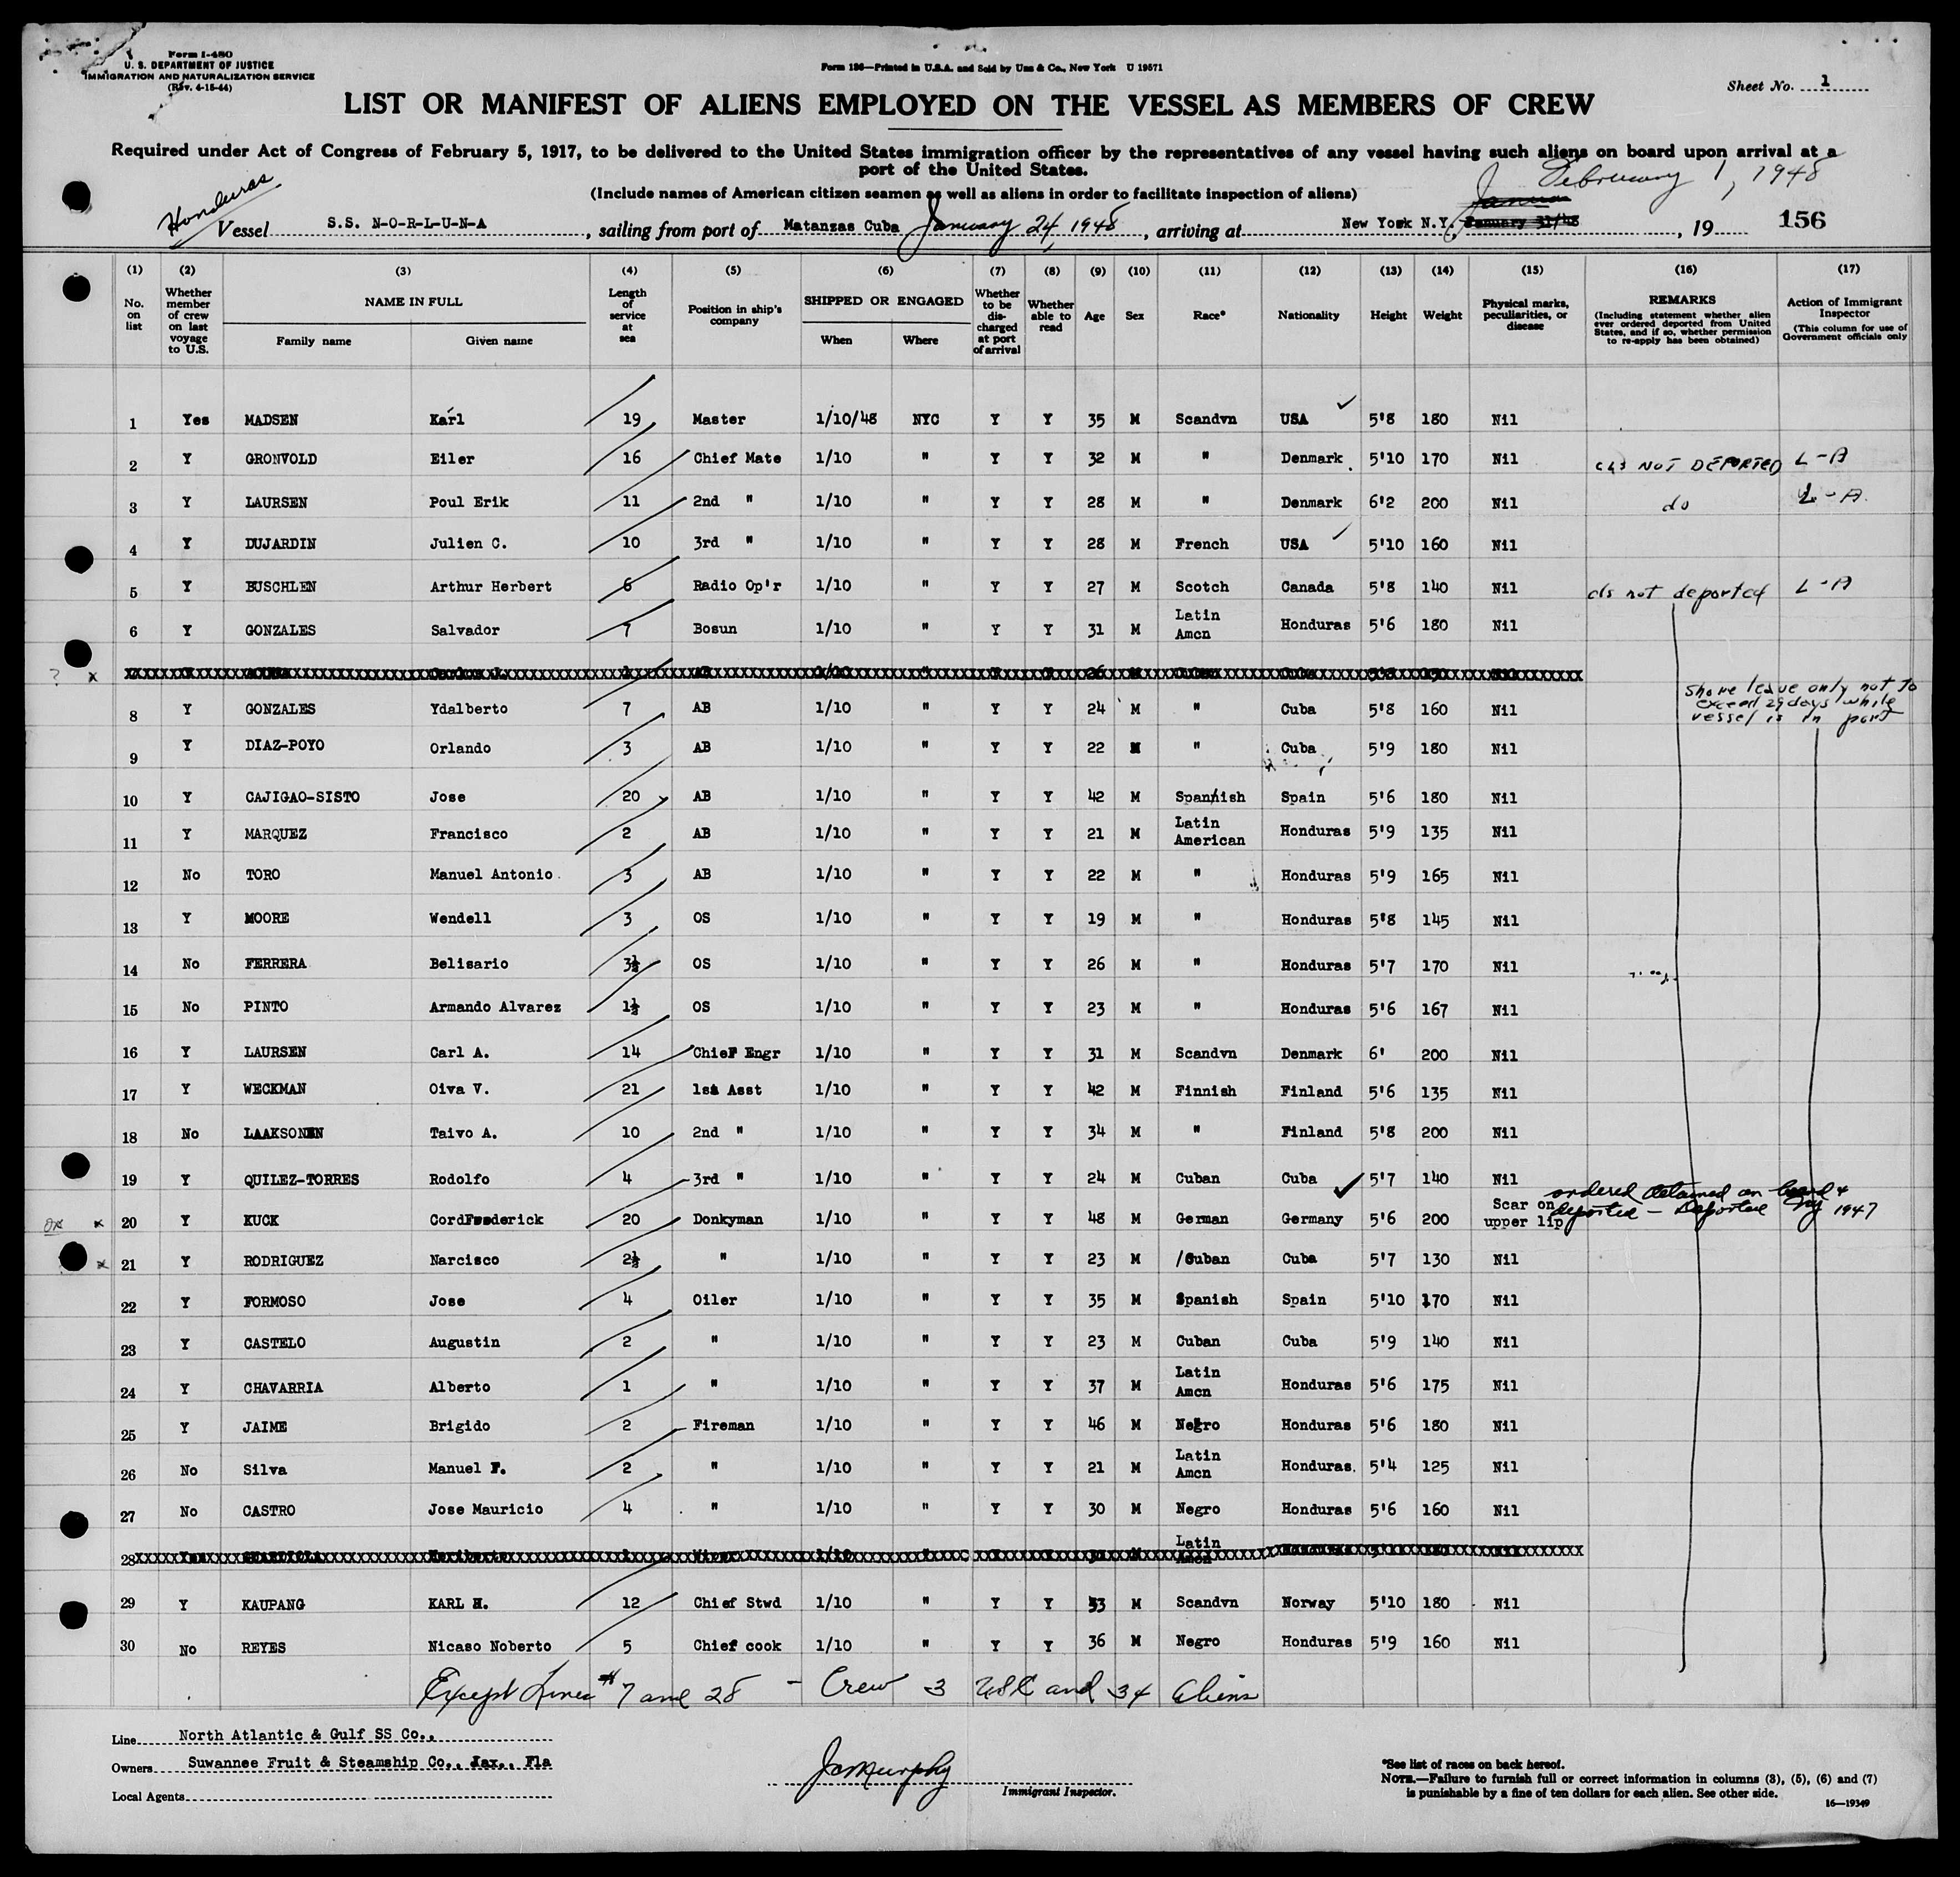 Form I-480
U. S. DEPARTMENT OF JUSTICE
IMMIGRATION AND NATURALIZATION SERVICE
(Rev. 4-15-44)
Form 136—Printed in U.S.A. and Sold by Unz & Co., New York U 19571
Sheet No. 1
LIST OR MANIFEST OF ALIENS EMPLOYED ON THE VESSEL AS MEMBERS OF CREW
Required under Act of Congress of February 5, 1917, to be delivered to the United States immigration officer by the representatives of any vessel having such aliens on board upon arrival at a
port of the United States.
(Include names of American citizen seamen as well as aliens in order to facilitate inspection of aliens)
February 1, 1948
Honduras
Vessel S.S. N-O-R-L-U-N-A, sailing from port of Matanzas Cuba January 24, 1948, arriving at New York N.Y. January 31/48, 19 156
(1) (2) (3) (4) (5) (6) (7) (8) (9) (10) (11) (12) (13) (14) (15) (16) (17)
No. on list
Whether member of crew on last voyage to U.S.
NAME IN FULL
Family name Given name
Length of service at sea
Position in ship's company
SHIPPED OR ENGAGED
When Where
Whether to be discharged at port of arrival
Whether able to read
Age
Sex
Race*
Nationality
Height
Weight
Physical marks, peculiarities, or disease
REMARKS
(Including statement whether alien ever ordered deported from United States, and if so, whether permission to re-apply has been obtained)
Action of Immigrant Inspector
(This column for use of Government officials only)
1 Yes MADSEN Karl 19 Master 1/10/48 NYC Y Y 35 M Scandvn USA 5'8 180 Nil
2 Y GRONVOLD Eiler 16 Chief Mate 1/10 " Y Y 32 M " Denmark 5'10 170 Nil cls NOT DEPORTED L-A
3 Y LAURSEN Poul Erik 11 2nd " 1/10 " Y Y 28 M " Denmark 6'2 200 Nil do L-A
4 Y DUJARDIN Julien C. 10 3rd " 1/10 " Y Y 28 M French USA 5'10 160 Nil
5 Y BUSCHLEN Arthur Herbert 6 Radio Op'r 1/10 " Y Y 27 M Scotch Canada 5'8 140 Nil cls not deported L-A
6 Y GONZALES Salvador 7 Bosun 1/10 " Y Y 31 M Latin Amcn Honduras 5'6 180 Nil
? x
shore leave only not to
exceed 29 days while
vessel is in port
8 Y GONZALES Ydalberto 7 AB 1/10 " Y Y 24 M " Cuba 5'8 160 Nil
9 Y DIAZ-POYO Orlando 3 AB 1/10 " Y Y 22 M " Cuba 5'9 180 Nil
10 Y CAJIGAO-SISTO Jose 20 AB 1/10 " Y Y 42 M Spannish Spain 5'6 180 Nil
11 Y MARQUEZ Francisco 2 AB 1/10 " Y Y 21 M Latin American Honduras 5'9 135 Nil
12 No TORO Manuel Antonio 3 AB 1/10 " Y Y 22 M " Honduras 5'9 165 Nil
13 Y MOORE Wendell 3 OS 1/10 " Y Y 19 M " Honduras 5'8 145 Nil
14 No FERRERA Belisario 3½ OS 1/10 " Y Y 26 M " Honduras 5'7 170 Nil
15 No PINTO Armando Alvarez 1½ OS 1/10 " Y Y 23 M " Honduras 5'6 167 Nil
16 Y LAURSEN Carl A. 14 Chief Engr 1/10 " Y Y 31 M Scandvn Denmark 6' 200 Nil
17 Y WECKMAN Oiva V. 21 1st Asst 1/10 " Y Y 42 M Finnish Finland 5'6 135 Nil
18 No LAAKSONEN Taivo A. 10 2nd " 1/10 " Y Y 34 M " Finland 5'8 200 Nil
19 Y QUILEZ-TORRES Rodolfo 4 3rd " 1/10 " Y Y 24 M Cuban Cuba 5'7 140 Nil
x 20 Y KUCK CordFrederick 20 Donkyman 1/10 " Y Y 48 M German Germany 5'6 200 Scar on upper lip ordered detained on board & deported - Deported 1947
x 21 Y RODRIGUEZ Narcisco 2½ " 1/10 " Y Y 23 M Cuban Cuba 5'7 130 Nil
22 Y FORMOSO Jose 4 Oiler 1/10 " Y Y 35 M Spanish Spain 5'10 170 Nil
23 Y CASTELO Augustin 2 " 1/10 " Y Y 23 M Cuban Cuba 5'9 140 Nil
24 Y CHAVARRIA Alberto 1 " 1/10 " Y Y 37 M Latin Amcn Honduras 5'6 175 Nil
25 Y JAIME Brigido 2 Fireman 1/10 " Y Y 46 M Negro Honduras 5'6 180 Nil
26 No Silva Manuel F. 2 " 1/10 " Y Y 21 M Latin Amcn Honduras. 5'4 125 Nil
27 No CASTRO Jose Mauricio 4 " 1/10 " Y Y 30 M Negro Honduras 5'6 160 Nil
28 Latin Amcn
29 Y KAUPANG KARL H. 12 Chief Stwd 1/10 " Y Y 53 M Scandvn Norway 5'10 180 Nil
30 No REYES Nicaso Noberto 5 Chief cook 1/10 " Y Y 36 M Negro Honduras 5'9 160 Nil
Except Lines # 7 and 28 - Crew 3 USC and 34 Aliens
Line North Atlantic & Gulf SS Co.,
Owners Suwannee Fruit & Steamship Co., Jax., Fla
Local Agents
JaMurphy
Immigrant Inspector.
*See list of races on back hereof.
NOTE.—Failure to furnish full or correct information in columns (3), (5), (6) and (7)
is punishable by a fine of ten dollars for each alien. See other side.
16—19349